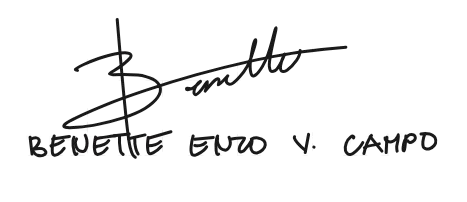 Benette
BENETTE ENZO V. CAMPO